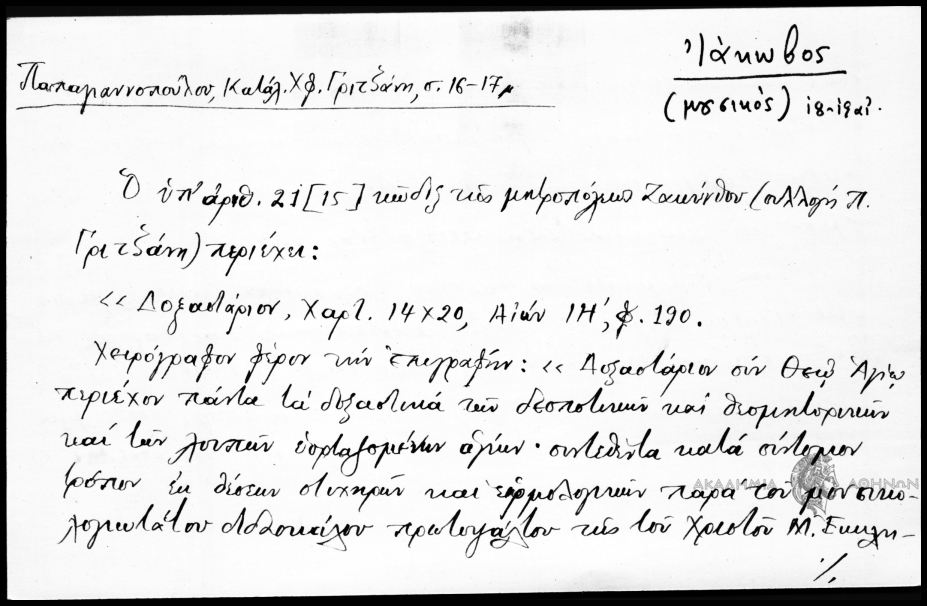 Ἰάκωβος
(μουσικός) ιη-ιθ αἰ.
Παπαγιαννοπούλου, Κατάλ. Χφ. Γριτζάνη, σ. 16-17
Ὁ ὑπ' ἀριθ. 21 [15] κῶδιξ τῆς μητροπόλεως Ζακύνθου (συλλογή Π.
Γριτζάνη) περιέχει:
<< Δοξαστάριον, Χαρτ. 14×20, Αἰών ΙΗ', φ. 190.
Χειρόγραφον φέρον τήν ἐπιγραφήν: << Δοξαστάριον σύν Θεῷ Ἁγίῳ
περιέχον πάντα τά δοξαστικά τῶν δεσποτικῶν καί θεομητορικῶν
καί τῶν λοιπῶν ἑορταζομένων ἁγίων· συντεθέντα κατά σύντομον
τρόπον ἐκ θέσεων στιχηρῶν καί εἱρμολογικῶν παρά τοῦ μουσικο-
λογιωτάτου διδασκάλου πρωτοψάλτου τῆς τοῦ Χριστοῦ Μ. Ἐκκλη-
./.
ΑΚΑΔΗΜΙΑ ΑΘΗΝΩΝ